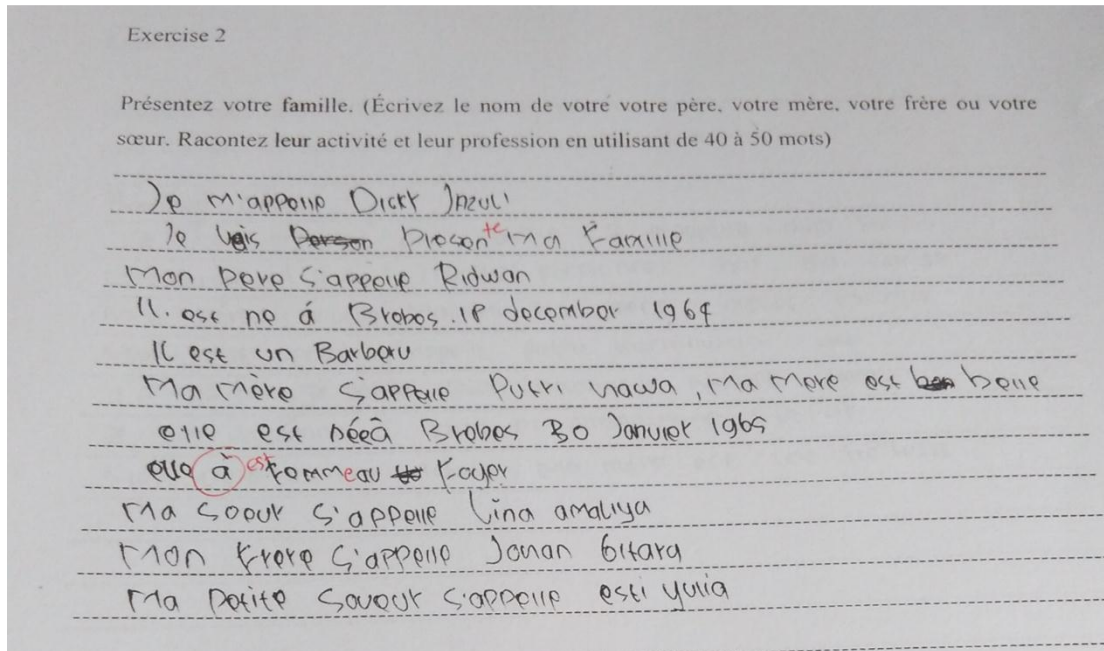 Exercise 2
Présentez votre famille. (Écrivez le nom de votre votre père, votre mère, votre frère ou votre
sœur. Racontez leur activité et leur profession en utilisant de 40 à 50 mots)
Je m'appelle Dicky Jazuli
Je vais presente ma Famille
Mon pere s'appelle Ridwan
Il est ne á Brebes 18 december 1964
Il est un Barbaru
Ma mère s'appelle Putri nawa, ma mere est belle
elle est néeà Brebes 30 Januier 1965
elle à est femmeau Foyer
Ma soeur s'appelle Lina amaliya
Mon Frere s'appelle Jonan Gitara
Ma Petite soueur s'appelle esti yulia